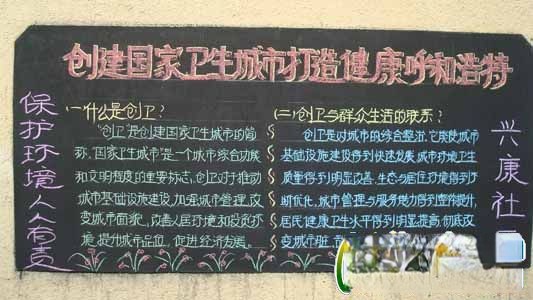 创建国家卫生城市打造健康呼和浩特
保护环境人人有责
一什么是创卫?
“创卫”是创建国家卫生城市的简
称,“国家卫生城市”是一个城市综合功能
和文明程度的重要标志,创卫对于推动
城市基础设施建设,加强城市管理,改
变城市面貌,改善人居环境和投资环
境,提升城市品位,促进经济发展
(二)创卫与群众生活的联系?
创卫是对城市的综合整治,它能使城市
基础设施建设得到快速发展,城市环境卫
质量得到明显改善,生态与居住环境得到不
断优化,城市管理与服务能力得到整体提升,
居民健康卫生水平得到明显提高,彻底改
变城市脏
兴康社